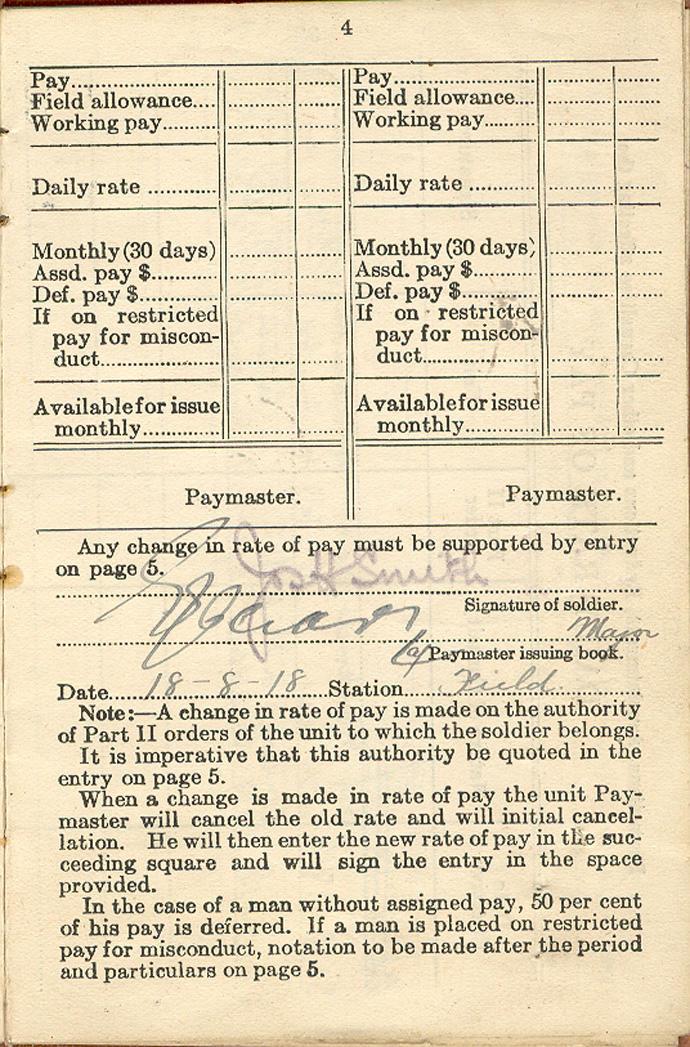 4
Pay.................... Pay....................
Field allowance.... Field allowance....
Working pay......... Working pay.........
Daily rate ............ Daily rate ............
Monthly (30 days) Monthly (30 days)
Assd. pay $........... Assd. pay $...........
Def. pay $............. Def. pay $.............
If on restricted If on restricted
pay for miscon- pay for miscon-
duct.................... duct....................
Available for issue Available for issue
monthly............. monthly.............
Paymaster. Paymaster.
Any change in rate of pay must be supported by entry
on page 5.
Jos H Smith
Signature of soldier.
Major
Paymaster issuing book.
Date.....18-8-18....Station.....Field..........
Note:—A change in rate of pay is made on the authority
of Part II orders of the unit to which the soldier belongs.
It is imperative that this authority be quoted in the
entry on page 5.
When a change is made in rate of pay the unit Pay-
master will cancel the old rate and will initial cancel-
lation. He will then enter the new rate of pay in the suc-
ceeding square and will sign the entry in the space
provided.
In the case of a man without assigned pay, 50 per cent
of his pay is deferred. If a man is placed on restricted
pay for misconduct, notation to be made after the period
and particulars on page 5.